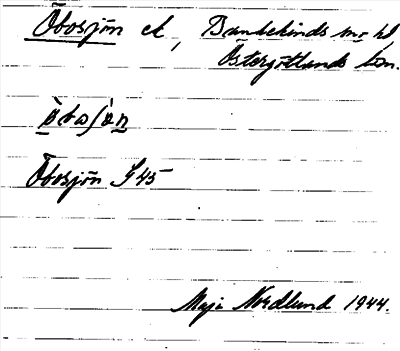 Öbosjön el, Bankekinds sn o hd
Östergötlands län.
ö̀bos̷ö̀n
Öbosjön G45
Maja Nordlund 1944.